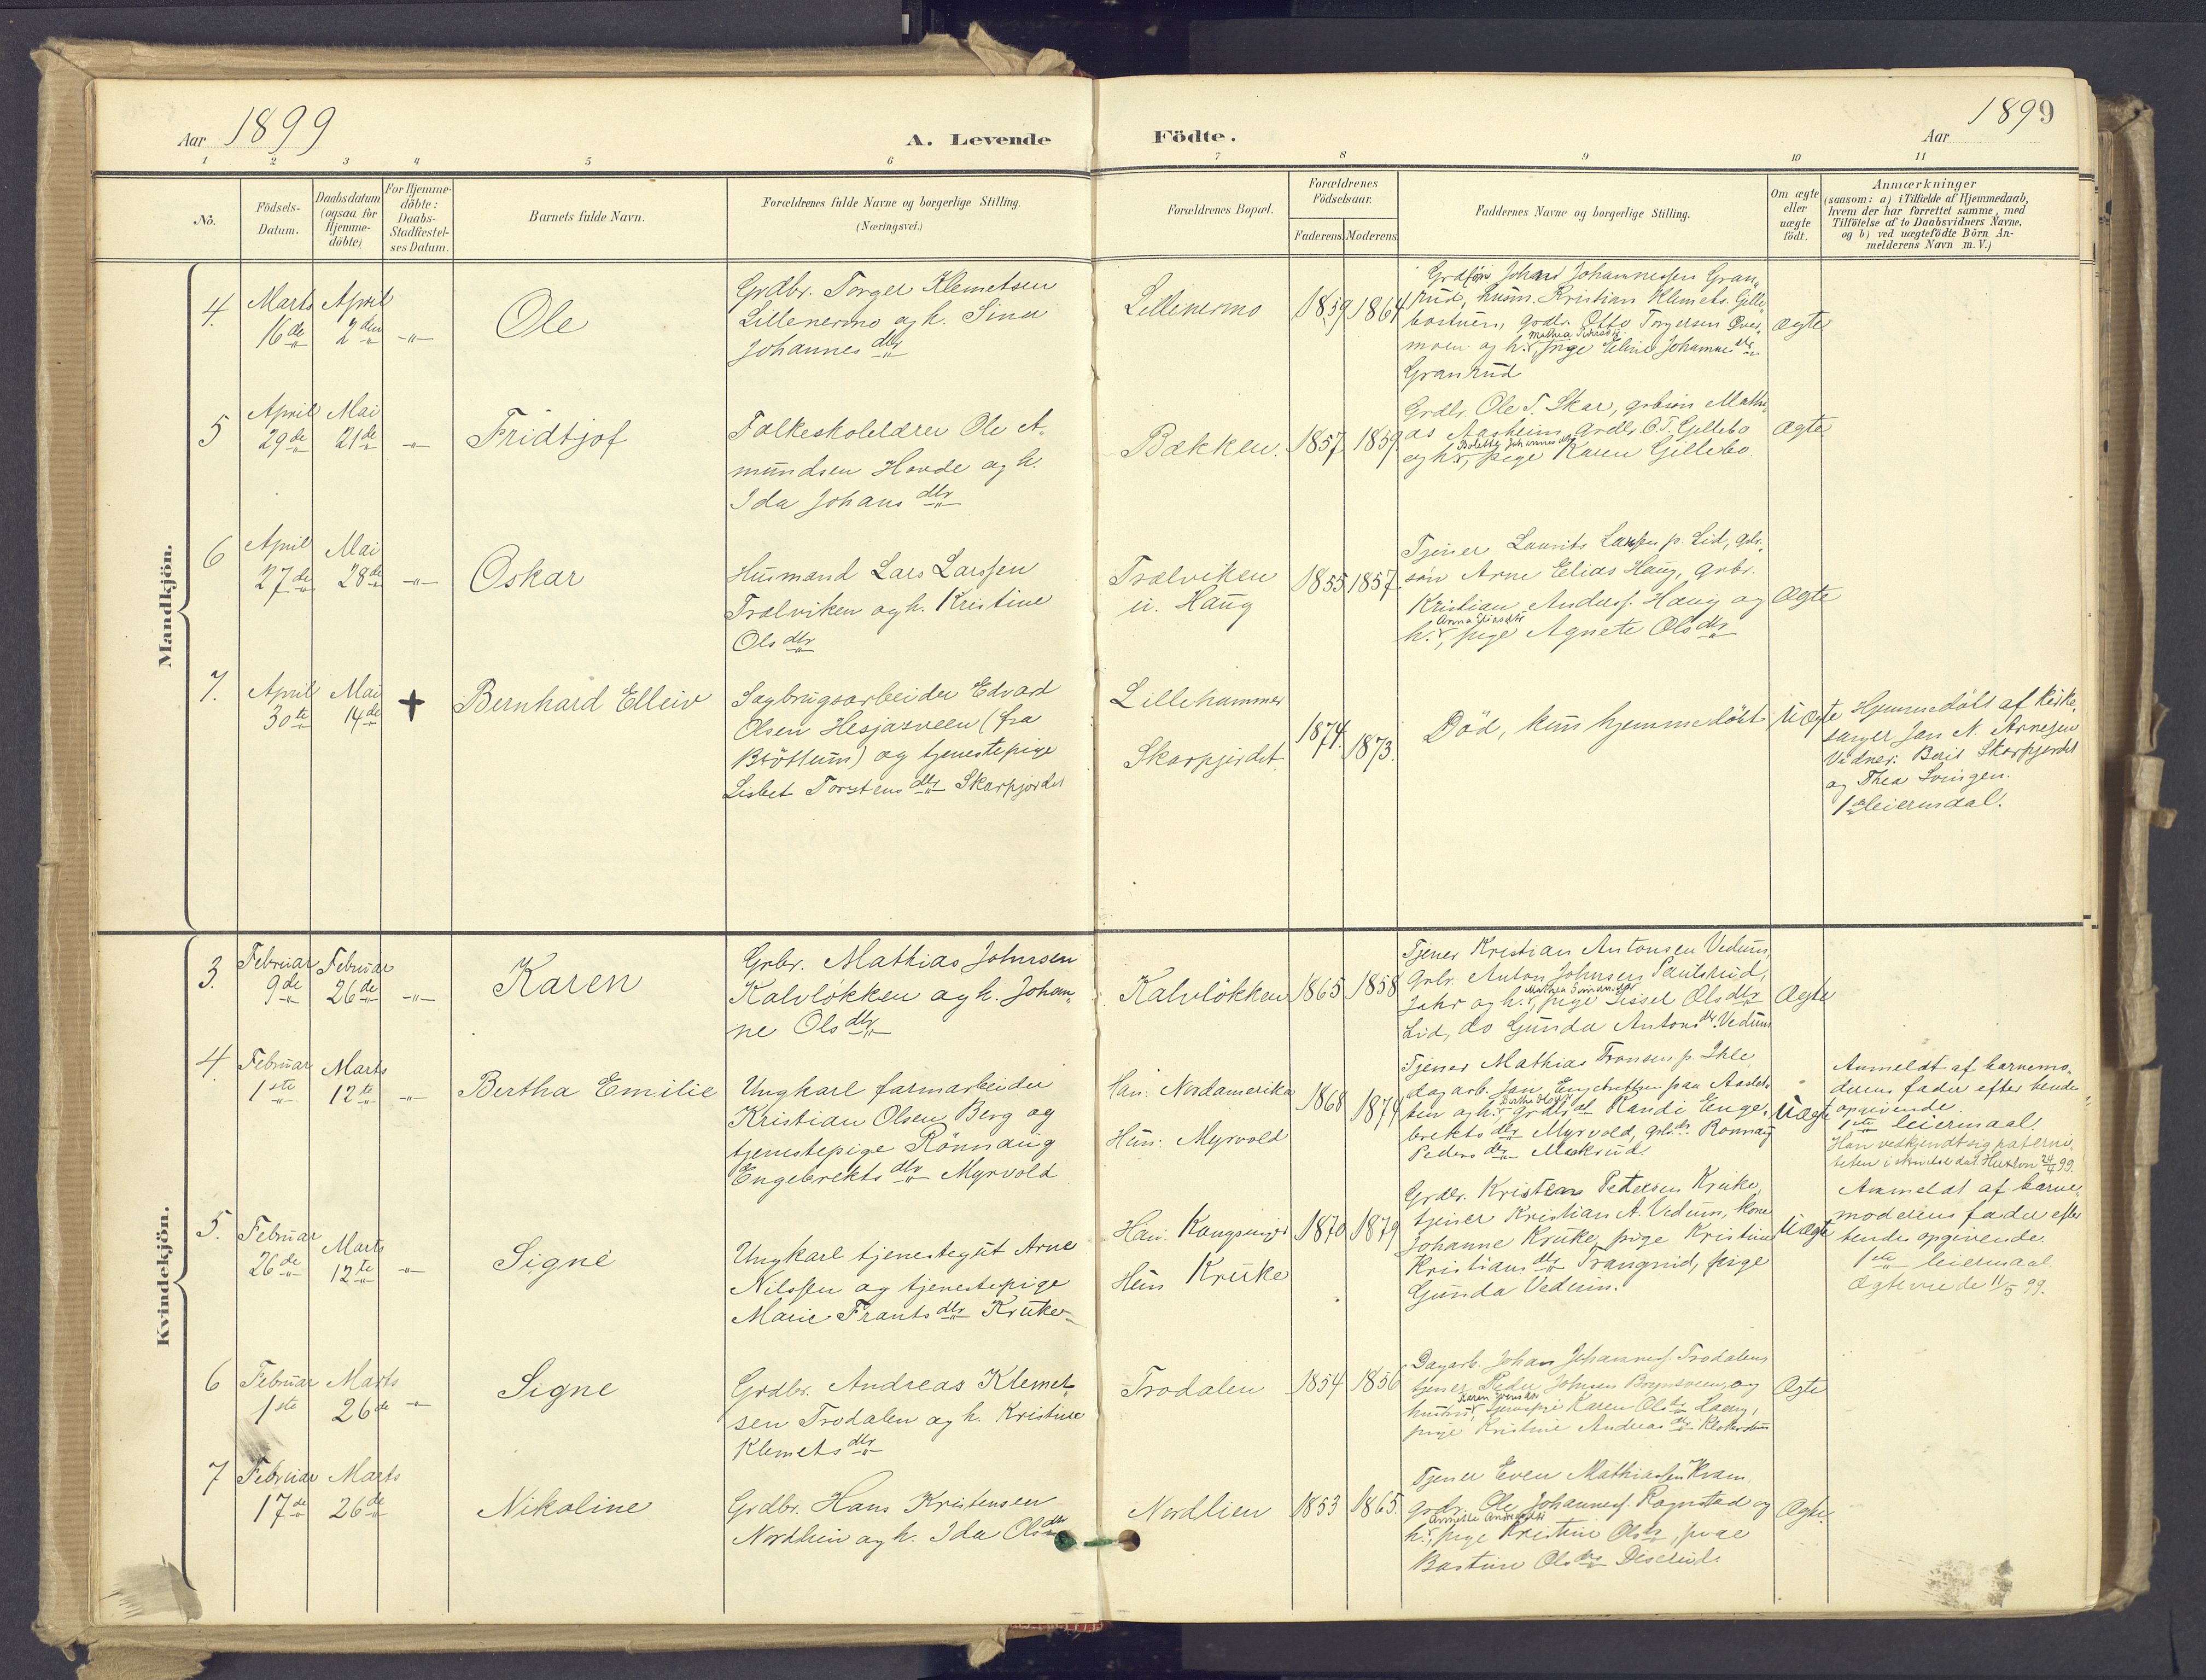 Aar 1899
A. Levende Födte.
Aar 1899
9
1 2 3 4 5 6 7 8 9 10 11
No.
Födsels-Datum.
Daabsdatum (ogsaa for Hjemmedöbte)
For Hjemmedöbte: Daabs-Stadfæstelses Datum.
Barnets fulde Navn.
Forældrenes fulde Navne og borgerlige Stilling.
(Næringsvei.)
Forældrenes Bopæl.
Forældrenes Födselsaar.
Faderens Moderens
Faddernes Navne og borgerlige Stilling.
Om ægte eller uægte födt.
Anmærkninger
(saasom: a) i Tilfælde af Hjemmedaab,
hvem der har forrettet samme, med
Tilföielse af to Daabsvidners Navne,
og b) ved uægtefödte Börn An-
melderens Navn m. V.)
Mandkjön.
4. Marts 16de April 2den -"- Ole
Grdbr. Torger Klemetsen
Lillenermo og h. Sina
Johannesdtr
Lillenermo 1859 1864
Grdsön Johan Johannessen Gran-
rud, husm. Kristian Klemets. Gille-
bostuen, grdbr. Otto Torgersen Över-
moen og h.r, pige Eline Johannesdtr
Granrud
ægte
5 April 29de Mai 21de -"- Fridtjof
Folkeskolelærer Ole A-
mundsen Hovde og h.
Ida Johansdtr
Bækken. 1857 1859.
Grdbr. Ole T. Skar, grbsön Mathi-
as Aasheim, grdbr. O. T. Gillebo
Bolette Johannesdtr
og h.r, pige Karen Gillebo.
ægte
6 April 27de Mai 28de -"- Oskar
Husmand Lars Larssen
Trælviken og h. Kristine
Olsdtr
Trælviken
u. Haug
1855 1857.
Tjener Laurits Larssen p. Lid, gbr.
sön Arne Elias Haug, grbr.
Kristian Anders. Haug og
Anna Eliasdtr
h.r, pige Agnete Olsdtr
Ægte
7. April 30te Mai 14de + Bernhard Elleiv
Sagbrugsarbeider Edvard
Olsen Hesjasveen (fra
Bröttum) og tjenestepige
Lisbet Torstensdtr Skarpjordet
Lillehammer
Skarpjordet
1874. 1873.
Död, kun hjemmedöbt
Uægte
Hjemmedöbt af kirke-
sanger Jan N. Arnesen
Vidner: Berit Skarpjordet
og Thea Svingen.
1ste leiermaal.
Kvindekjön.
3. Februar 9de Februar 26de -"- Karen
Grbr. Mathias Johnsen
Kalvlökken og h. Johan-
ne Olsdtr
Kalvlökken 1865 1858
Tjener Kristian Antonsen Vedum,
Grbr. Anton Johnsen Paulsrud,
Jahr og h.r, pige Sissel Olsdtr
Lid, do Gunda Antonsdtr Vedum
Ægte
4. Februar 1ste Marts 12te -"- Bertha Emilie
Ungkarl farmarbeider
Kristian Olsen Berg og
tjenestepige Rönnaug
Engebrektsdtr Myrvold
Han: Nordamerika
Hun: Myrvold
1868 1874
Tjener Mathias Tronsen p. Ihle
dagarb. Jan Engebrettsen paa
og h.r Randi Enge-
brektsdtr Myrvold, Rönnaug
Pedersdtr
Uægte
Anmeldt af barnemo-
derens fader efter hendes
opgivende.
1ste leiermaal.
Han vedkjendt sig paterni-
teten i skrivelse dat. 24/4 99.
5. Februar 26de Marts 12te -"- Signe
Ungkarl tjenestegut Arne
Nilssen og tjenestepige
Marie Frantsdtr Kruke
Han: Kongsvinger
Hun Kruke
1870 1879
Grdbr. Kristen Pedersen Kruke,
tjener Kristian A. Vedum, kone
Johanne Kruke, pige Kristine
Kristiansdtr Trangrud, pige
Gunda Vedum.
Uægte
Anmeldt af barne-
moderens fader efter
hendes opgivende.
1ste leiermaal.
Ægteviede 11/5 99.
6 Februar 1ste Marts 26de -"- Signe
Grdbr. Andreas Klemet-
sen Trodalen og h. Kristine
Klemetsdtr
Trodalen 1854 1856
Dagarb. Johan Johannes. Trodalen
tjener Peder Johnsen Brynsveen, og
Karen Olsdtr
pige Kristine Andreasdtr
Ægte
7 Februar 17de Marts 26de Nikoline
Grdbr. Hans Kristensen
Nordlien og h. Ida Olsdtr
Nordlien 1853 1865.
Tjener Even Mathiassen Kram,
grdbr. Ole Johannes. Rognstad og
h.r, pige Kristine Olsdtr, pige
Bastine Olsdtr Diserud.
Ægte.